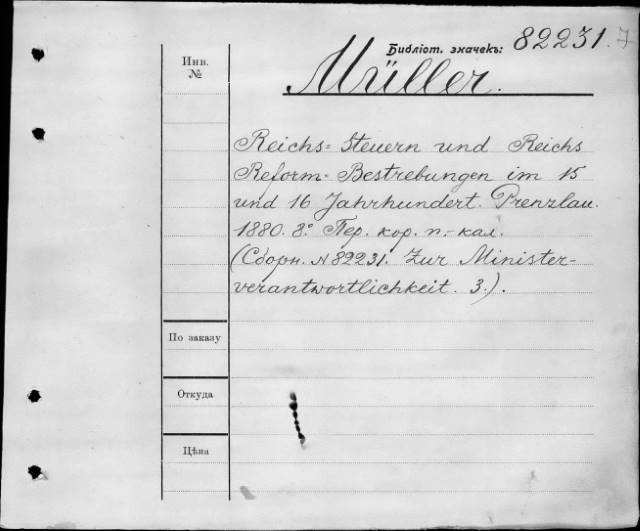 Библіот. значекъ: 82231.7
Инв.
№
Müller.
Reichs=Steuern und Reichs
Reform-Bestrebungen im 15
und 16 Jahrhundert. Prenzlau.
1880. 8°. Пер. кор. п.-кал.
(Сборн. №82231. Zur Minister-
verantwortlichkeit. 3.).
По заказу
Откуда
Цѣна